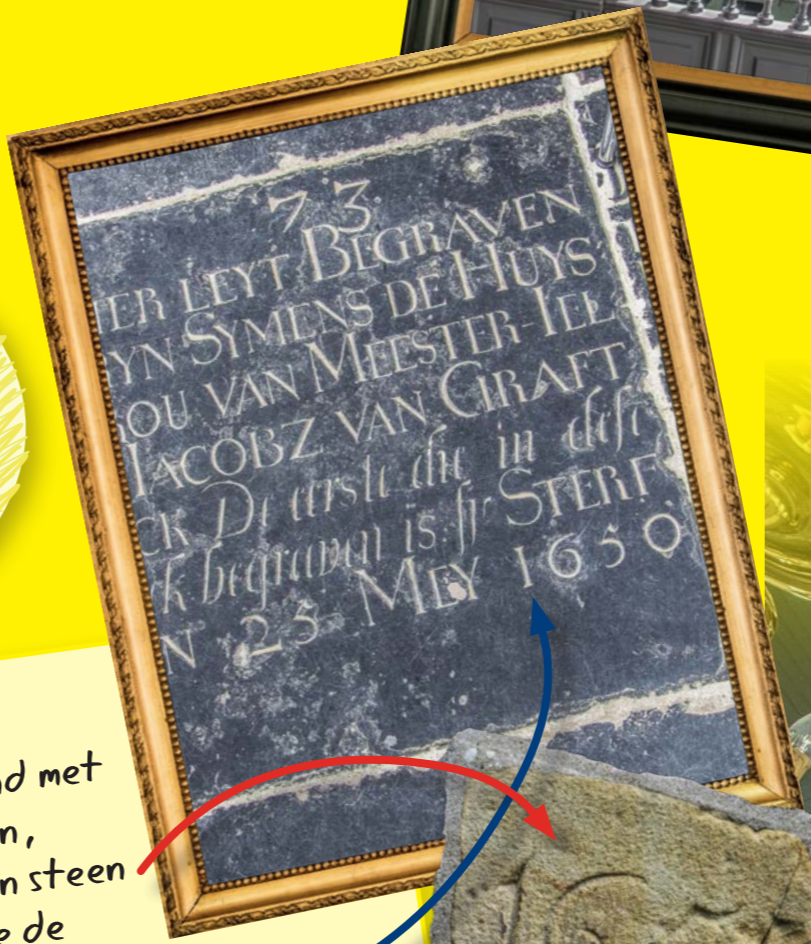 73
ER LEYT BEGRAVEN
YN SYMENS DE HUYS
OU VAN MEESTER-IEL
IACOBZ VAN GRAFT
CK De eerste die in dese
k begraven is sy STERF
N 25 MEY 1650
d met
n,
n steen
e de